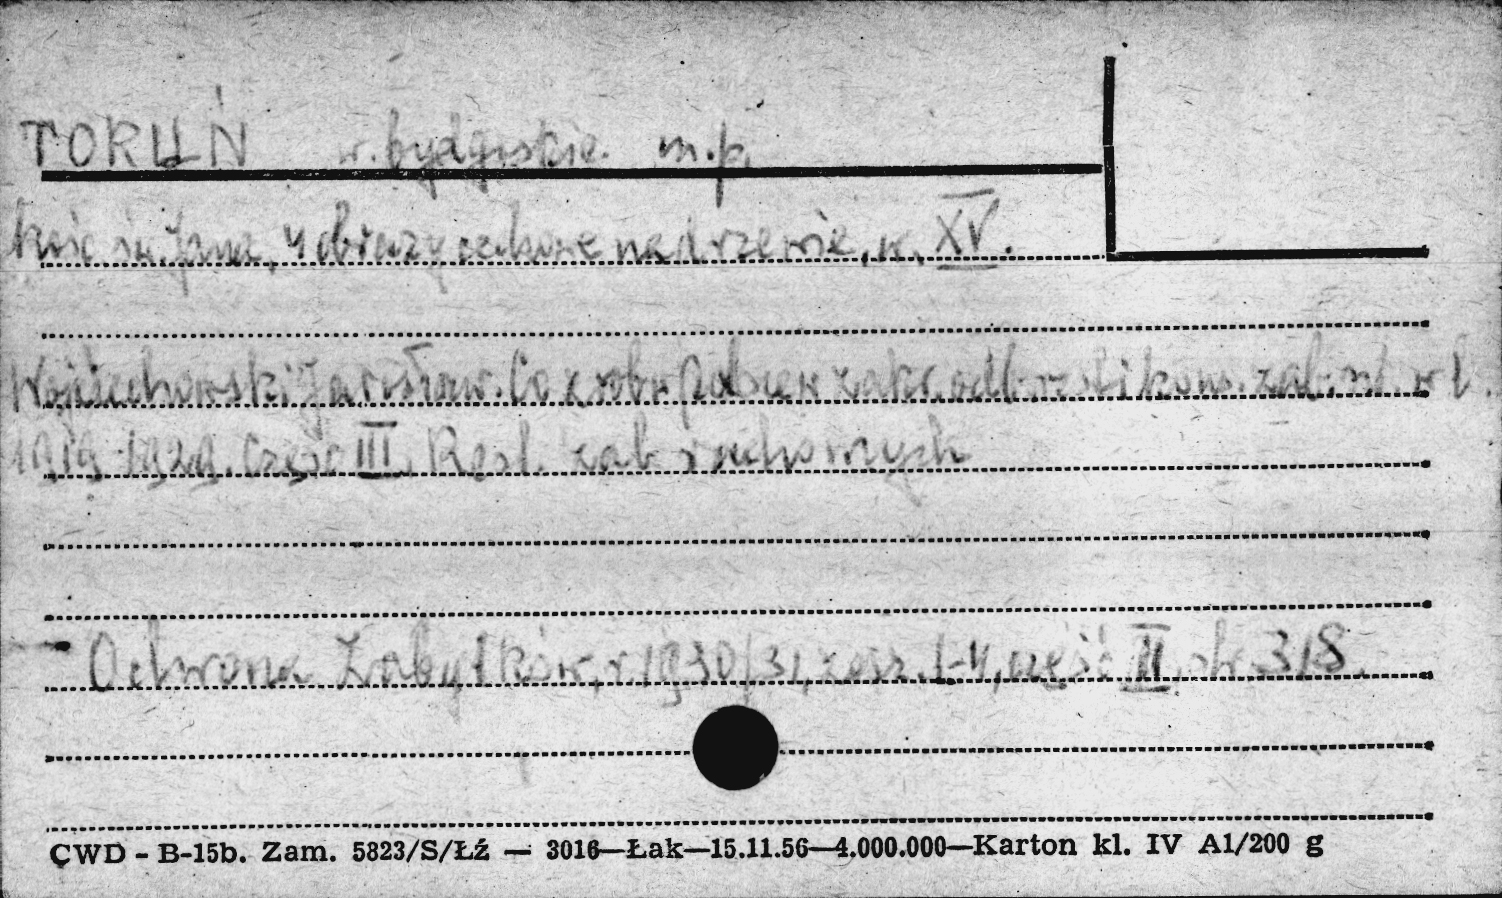 TORUŃ w. bydgoskie. m.p.
Kośc. św. Jana, 4 obrazy cechowe na drzewie, w. XV.
Wojciechowski Jarosław. Co zrobi Państw zakr. odb. i kons. zab. szt. w l.
1919-1929. Część III. Rest. zab ruchomych
Ochrona Zabytków, r. 1930/31, zesz. 1-4, część II, str. 318.
CWD - B-15b. Zam. 5823/S/Łź — 3016—Łak—15.11.56—4.000.000—Karton kl. IV A1/200 g